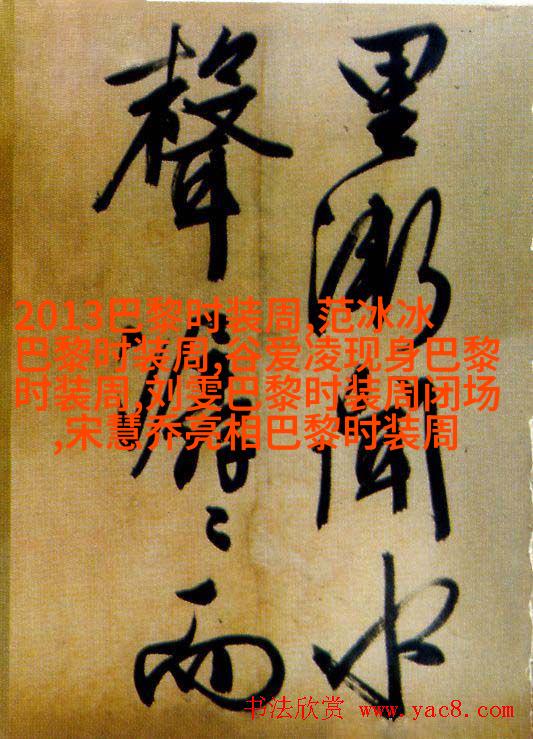 里漸聞水
聲潺〻而
2013巴黎时装周,范冰冰
巴黎时装周,谷爱凌现身巴黎
时装周,刘雯巴黎时装周闭场
,宋慧乔亮相巴黎时装周
书法欣赏 www.yac8.com